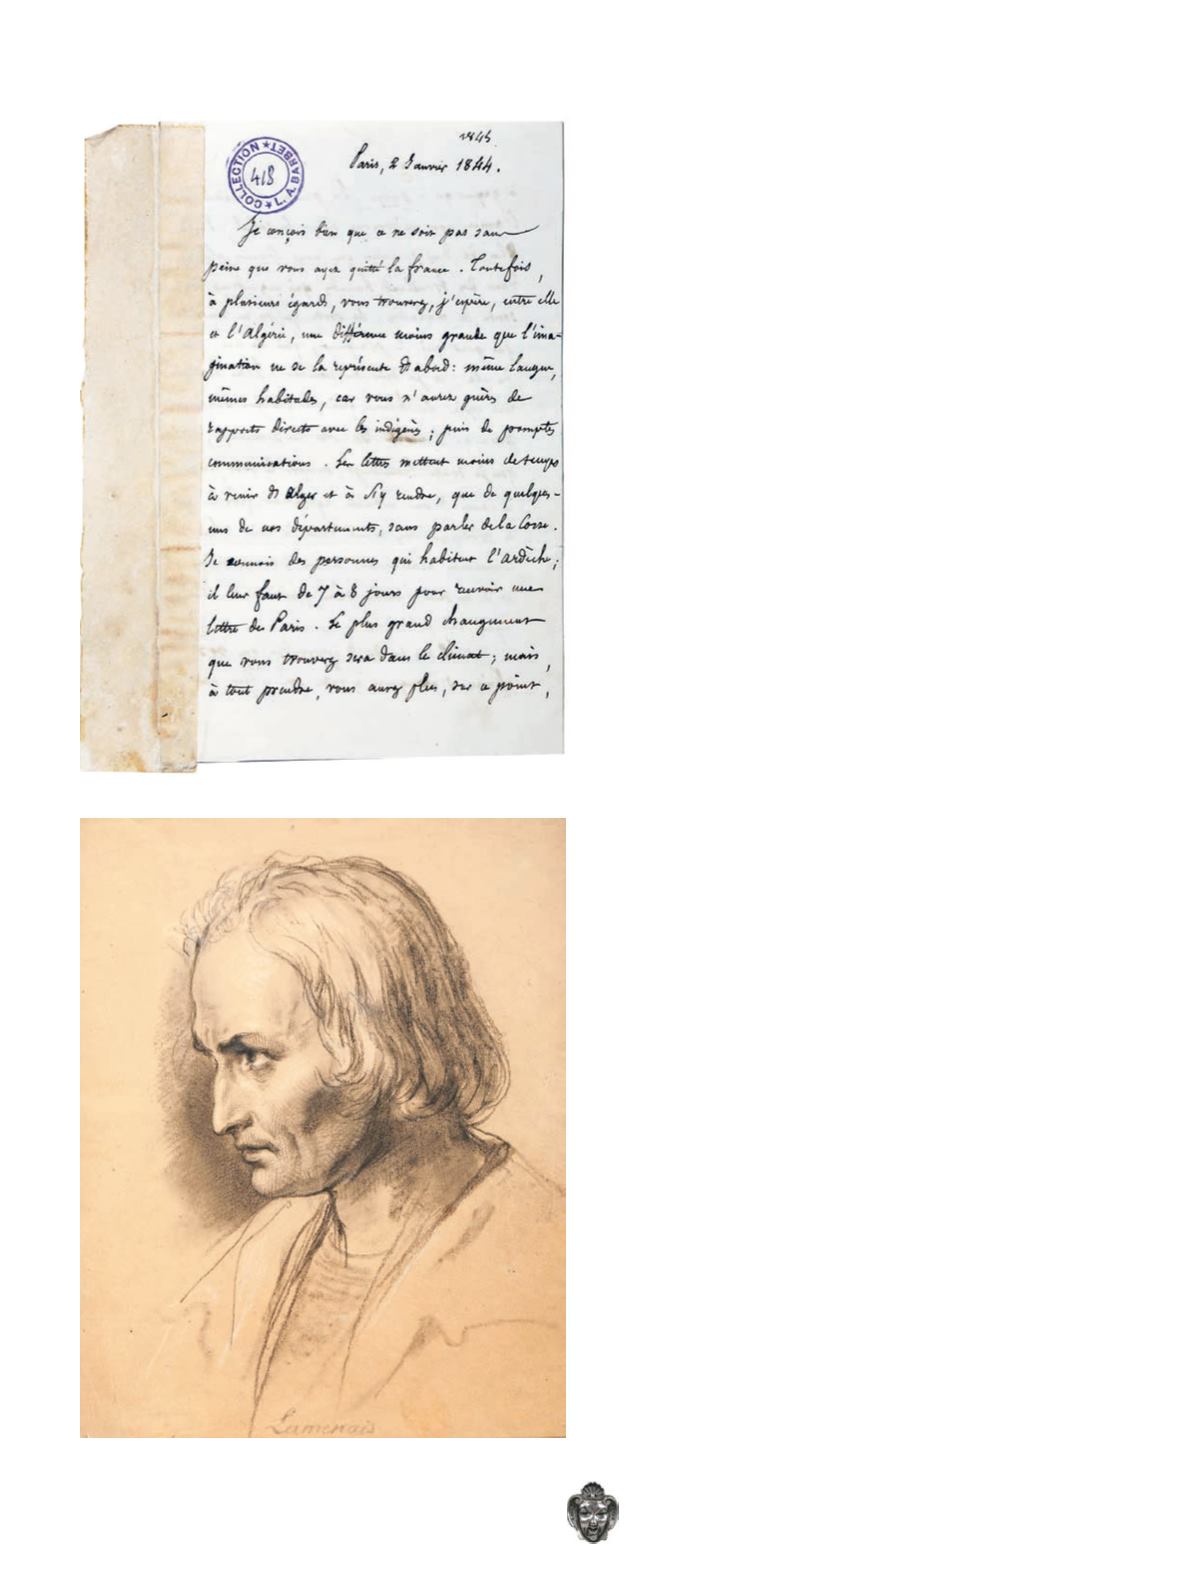 1845
Paris, 2 Janvier 1844.
★ COLLECTION ★ L. A. BARBET
418
Je conçois bien que ce ne soit pas sans
peine que vous ayez quitté la france. Toutefois,
à plusieurs égards, vous trouverez, j'espère, entre elle
et l'Algérie, une différence moins grande que l'ima-
gination ne se la représente d'abord: même langue,
mêmes habitudes, car vous n'aurez guères de
rapports directs avec les indigènes; puis de promptes
communications. Les lettres mettent moins de temps
à venir d'Alger et à s'y rendre, que de quelques-
uns de nos départements, sans parler de la Corse.
Je connais des personnes qui habitent l'ardèche;
il leur faut de 7 à 8 jours pour recevoir une
lettre de Paris. Le plus grand changement
que vous trouverez sera dans le climat; mais,
à tout prendre, vous aurez plus, sur ce point,
Lamenais